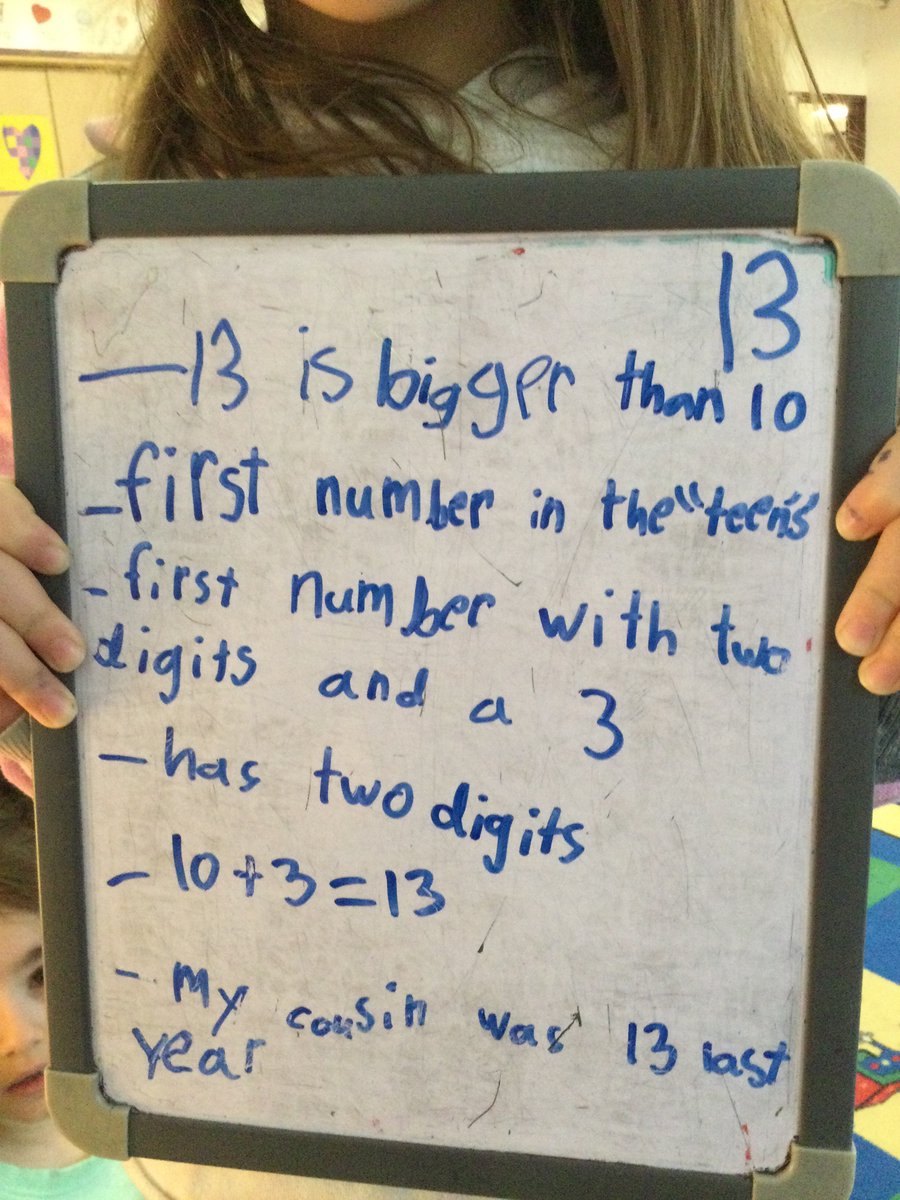 13
—13 is bigger than 10
-first number in the "teens"
-first number with two
digits and a 3
-has two digits
-10+3=13
-My cousin was 13 last
year